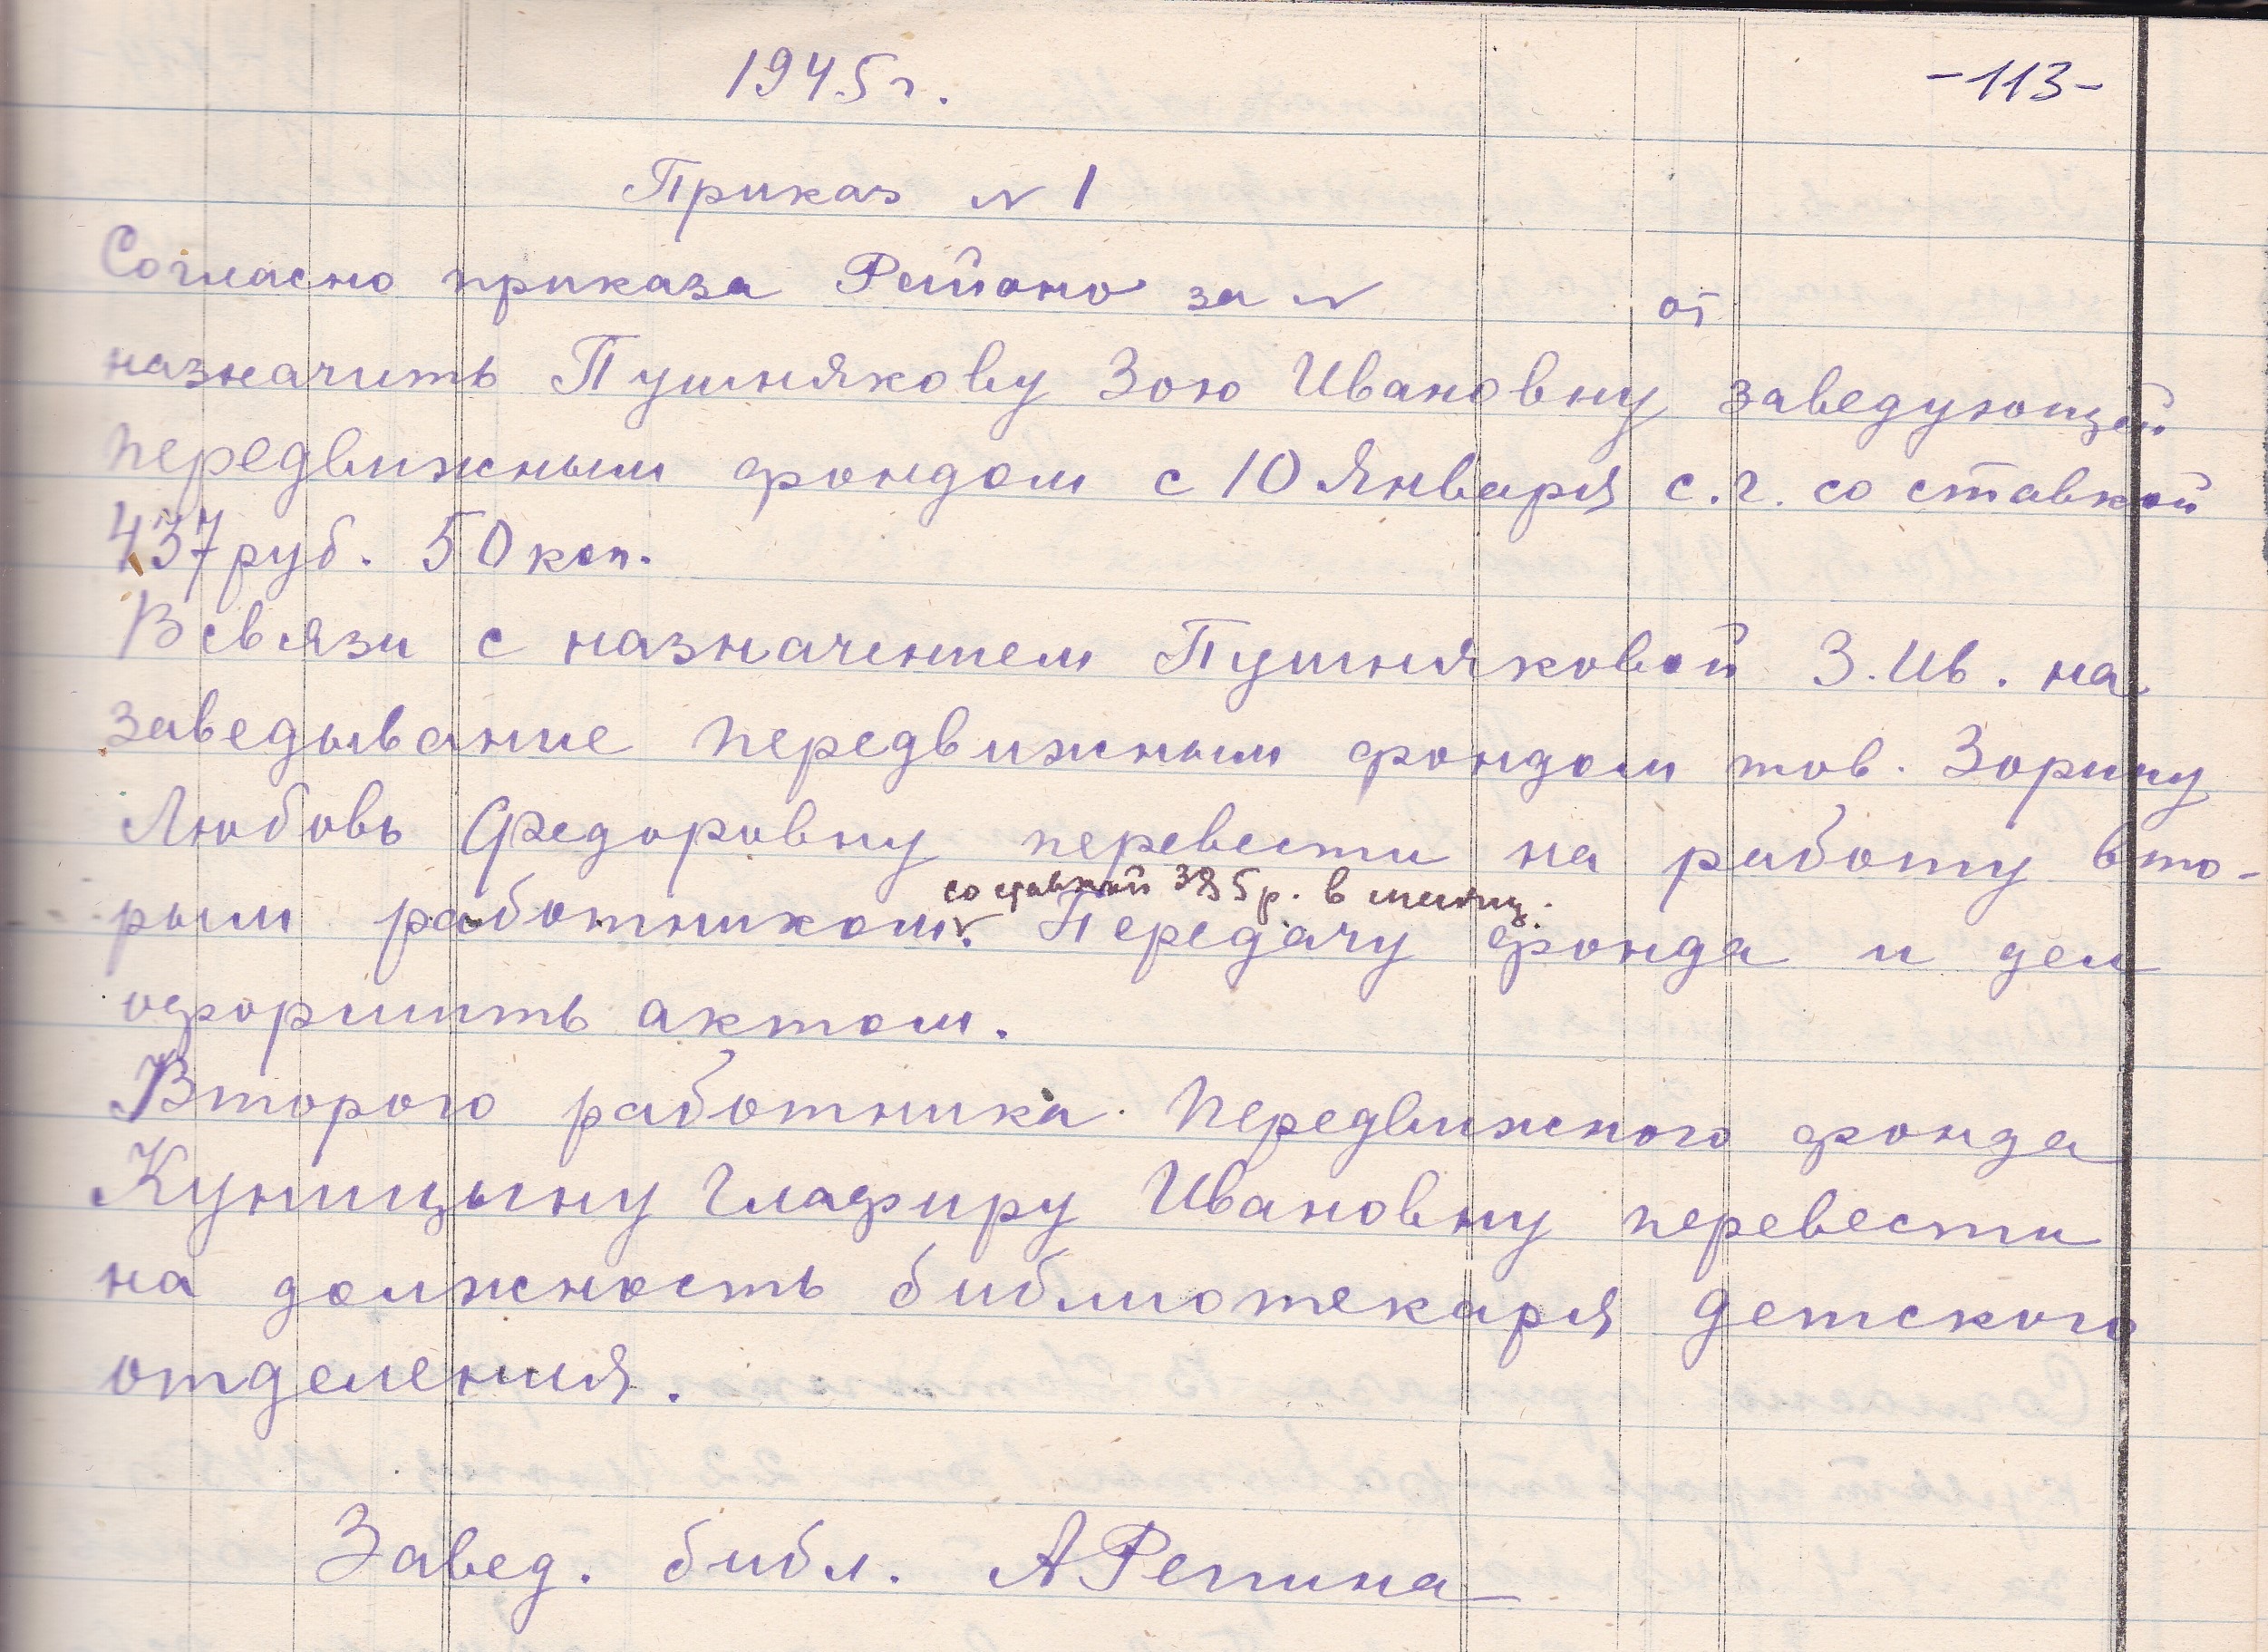 1945 г.
-113-
Приказ № 1
Согласно приказа Районо за № от
назначить Пушнякову Зою Ивановну заведующей
передвижным фондом с 10 Января с.г. со ставкой
437 руб. 50 коп.
В связи с назначением Пушняковой З.Ив. на
заведывание передвижным фондом тов. Зорину
Любовь Федоровну перевести на работу вто-
со ставкой 385 р. в месяц.
рым работником. Передачу фонда и дел
оформить актом.
Второго работника передвижного фонда
Куницыну Глафиру Ивановну перевести
на должность библиотекаря детского
отделения.
Завед. библ. АРепина